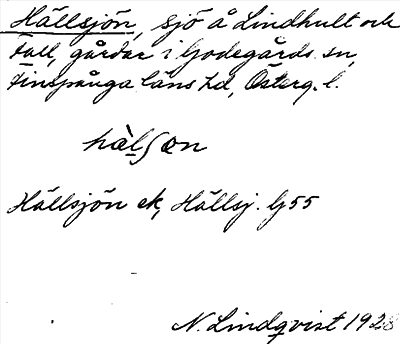 Hällsjön, sjö å Lindhult och
Fall, gårdar i Godegårds sn,
Finspånga läns hd, Österg. l.
hàlʃøn
Hällsjön ek, Hällsj. G55
N. Lindqvist 1928